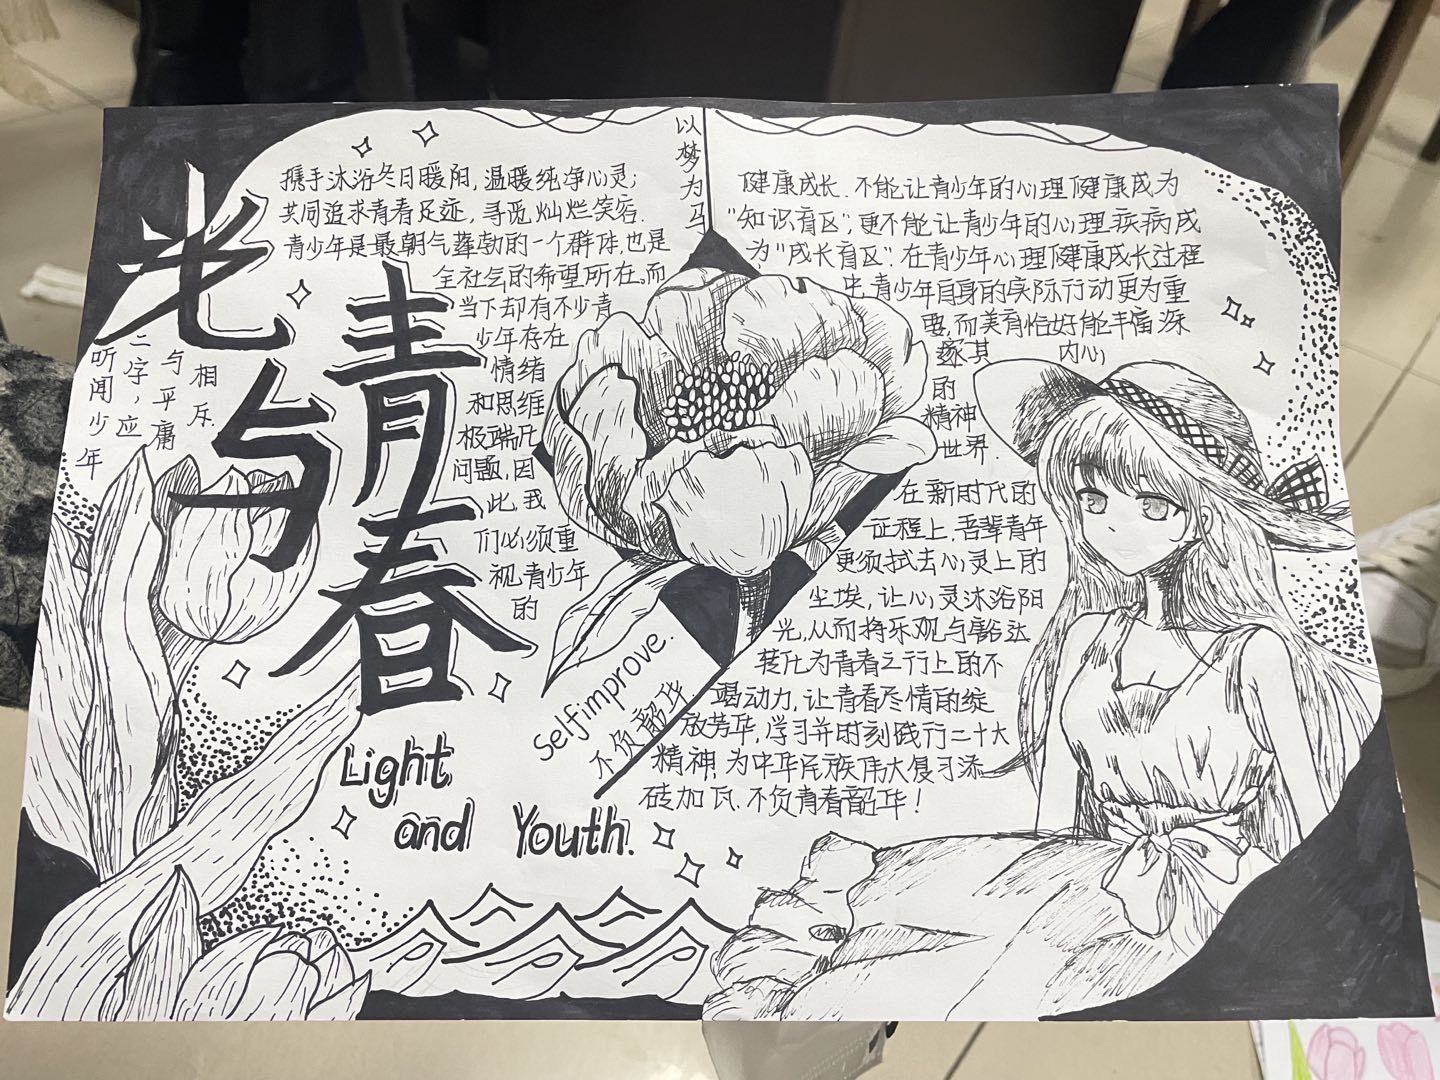 光与青春
听闻少年
二字，应
与平庸
相斥.
携手沐浴冬日暖阳，温暖纯净心灵；
共同追求青春足迹，寻觅灿烂笑容.
青少年是最朝气蓬勃的一个群体，也是
全社会的希望所在。而
当下却有不少青
少年存在
情绪
和思维
极端化
问题，因
此，我
们必须重
视青少年
的
以梦为马
健康成长.不能让青少年的心理健康成为
“知识盲区”，更不能让青少年的心理疾病成
为“成长盲区”.在青少年心理健康成长过程
中，青少年自身的实际行动更为重
要，而美育恰好能丰富深
邃其 内心
的
精神
世界.
在新时代的
征程上，吾辈青年
更须拭去心灵上的
尘埃，让心灵沐浴阳
光，从而将乐观与豁达
转化为青春之行上的不
竭动力，让青春尽情的绽
放芳华，学习并时刻践行二十大
精神，为中华民族伟大复习添
砖加瓦.不负青春韶华！
Selfimprove.
不负韶华.
Light
and Youth.